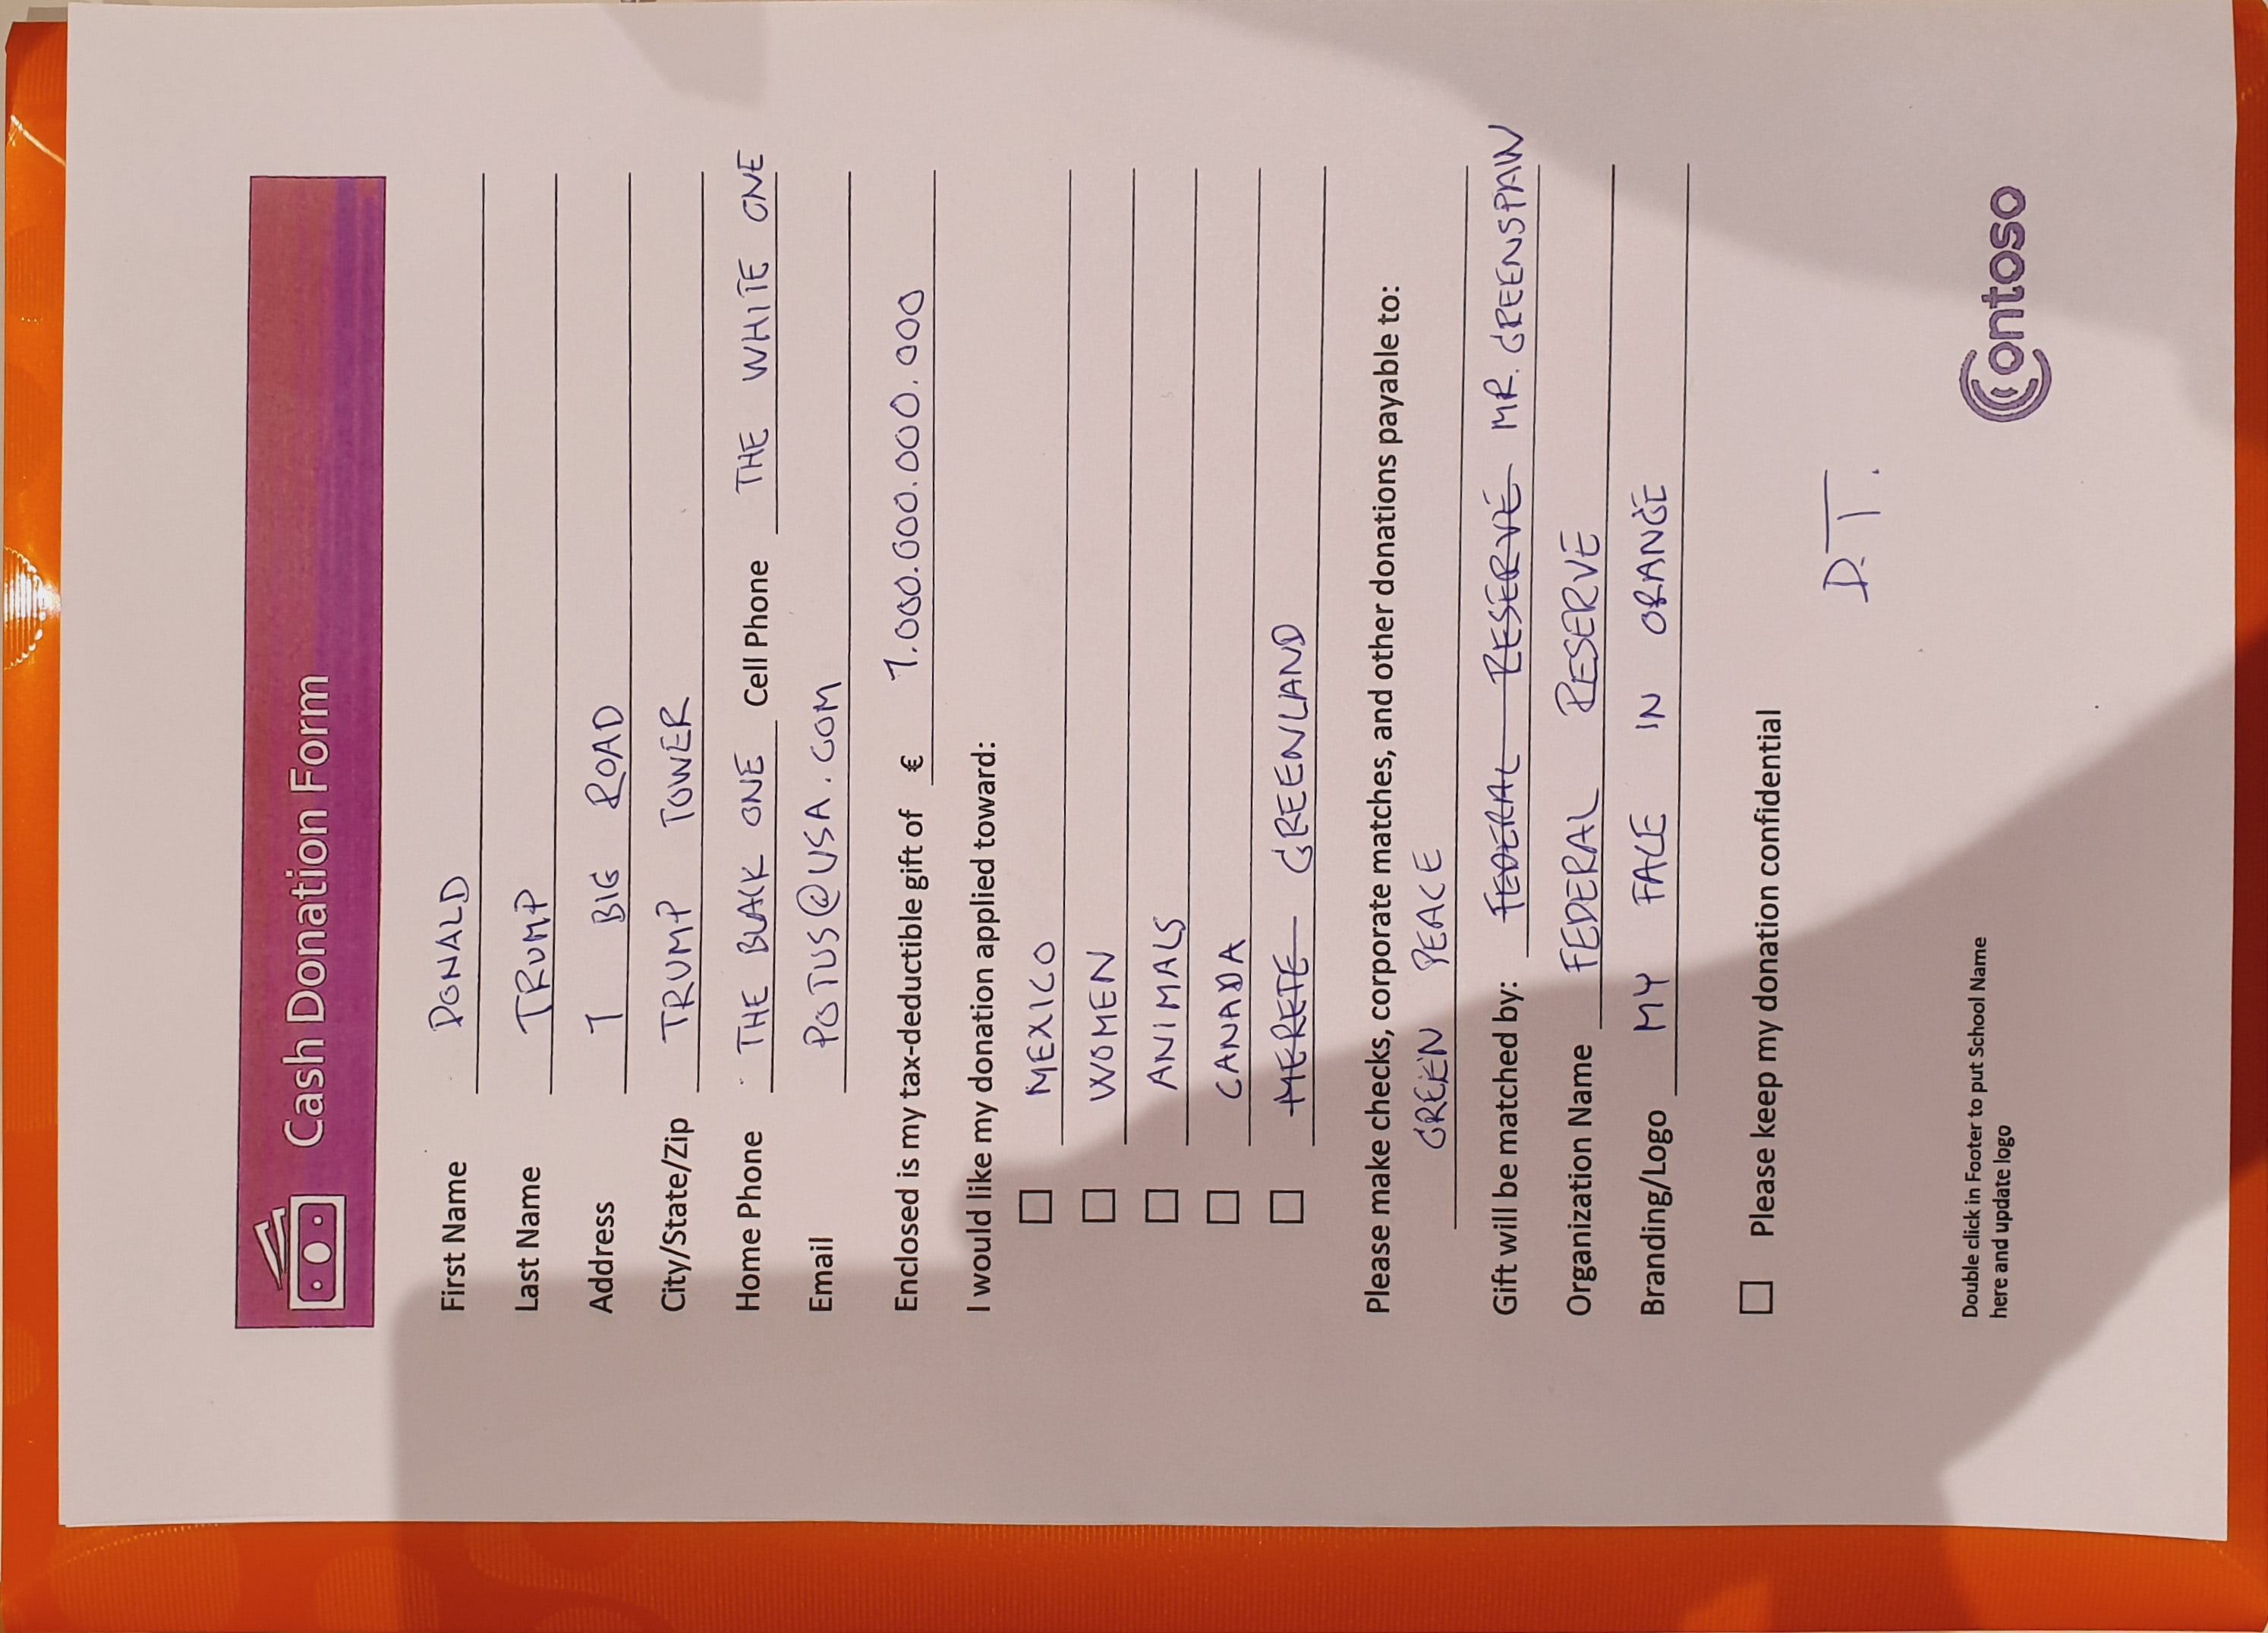 Cash Donation Form
First Name DONALD
Last Name TRUMP
Address 1 BIG ROAD
City/State/Zip TRUMP TOWER
Home Phone THE BLACK ONE Cell Phone THE WHITE ONE
Email POTUS@USA.COM
Enclosed is my tax-deductible gift of € 1.000.000.000.000
I would like my donation applied toward:
☐ MEXICO
☐ WOMEN
☐ ANIMALS
☐ CANADA
☐ MERETE GREENLAND
Please make checks, corporate matches, and other donations payable to:
GREEN PEACE
Gift will be matched by: FEDERAL RESERVE MR. GREENSPAW
Organization Name FEDERAL RESERVE
Branding/Logo MY FACE IN ORANGE
☐ Please keep my donation confidential
D.T.
Double click in Footer to put School Name
here and update logo
Contoso